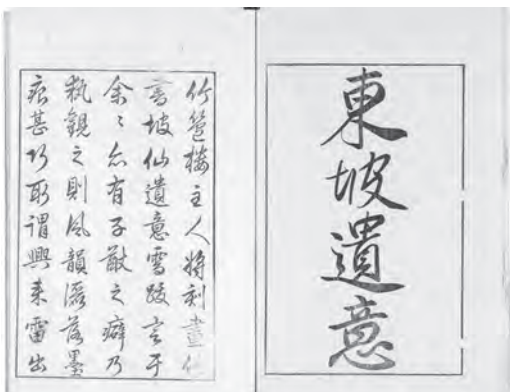 東坡遺意
竹筥樓主人將刻畫仙
書坡仙遺意需跋言于
余〻亦有子猷之癖乃
執觀之則風韻灑落墨
痕甚巧所謂興來雷出